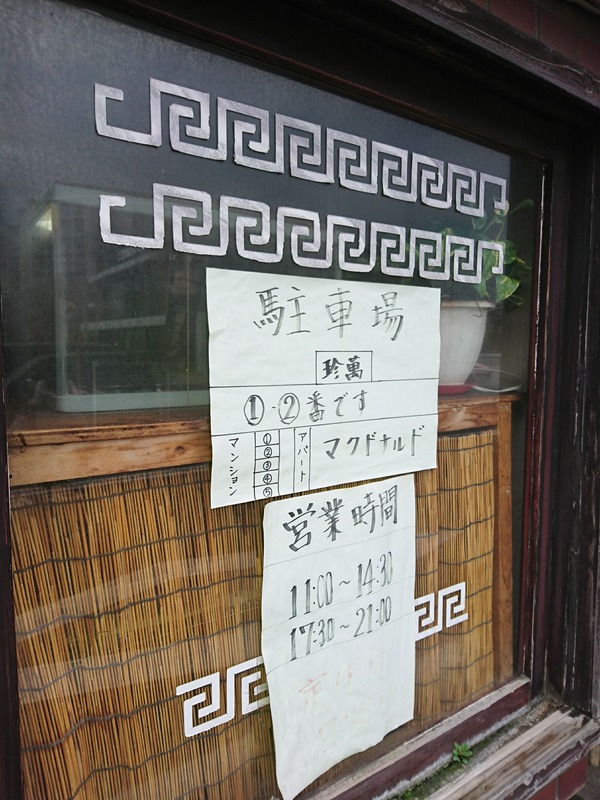 駐車場
珍萬
①・②番です
マンション
①
②
③
④
⑤
アパート
マクドナルド
営業時間
11:00~14:30
17:30~21:00